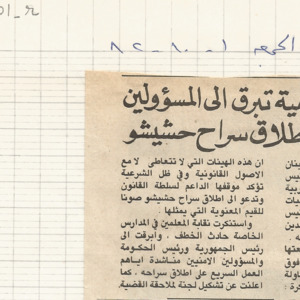 الجمعه ١ - ١٠ - ٨٢
ية تبرق الى المسؤولين
طلاق سراح حشيشو
ان هذه الهيئات التي لا تتعاطى الا مع
الاصول القانونية وفي ظل الشرعية
تؤكد موقفها الداعم لسلطة القانون
وتدعو الى اطلاق سراح حشيشو صونا
للقيم المعنوية التي يمثلها.
واستنكرت نقابة المعلمين في المدارس
الخاصة حادث الخطف، وابرقت الى
رئيس الجمهورية ورئيس الحكومة
والمسؤولين الامنيين مناشدة اياهم
العمل السريع على اطلاق سراحه، كما
اعلنت عن تشكيل لجنة ملاحقة القضية.